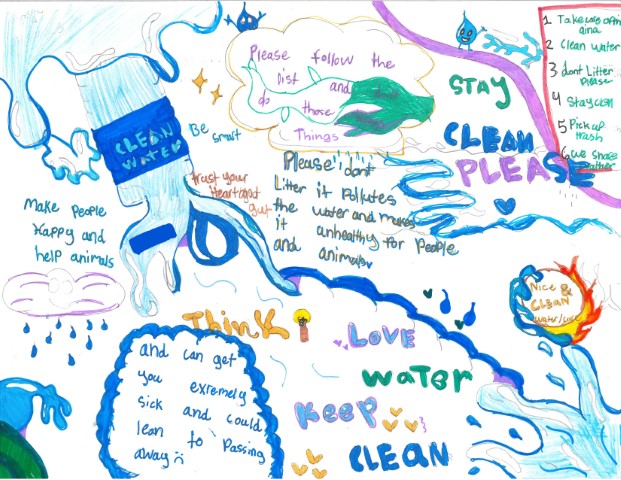 Please follow the
Dist and
do those
Things
1 Take care of
aina
2 Clean water
3 dont Litter
Please
4 Stay
5 Pick up
trash
6 we share
STAY
CLEAN
PLEASE
CLEAN
WATER
Be
smart
trust your
Heart and
gut
Please dont
Litter it Pollutes
the water and makes
it unhealthy for people
and animals
Make People
Happy and
help animals
Nice &
CLEAN
Water
THINK
LOVE
WATER
KEEP
CLEAN
and can get
you exremely
sick and could
lean to Passing
away